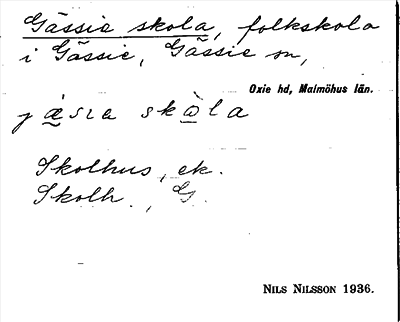 Gässie skola, folkskola
i Gässie, Gässie sn,
Oxie hd, Malmöhus län.
j æ̀ s ı a s k ὼ l a
Skolhus, ek.
Skolh., G.
NILS NILSSON 1936.